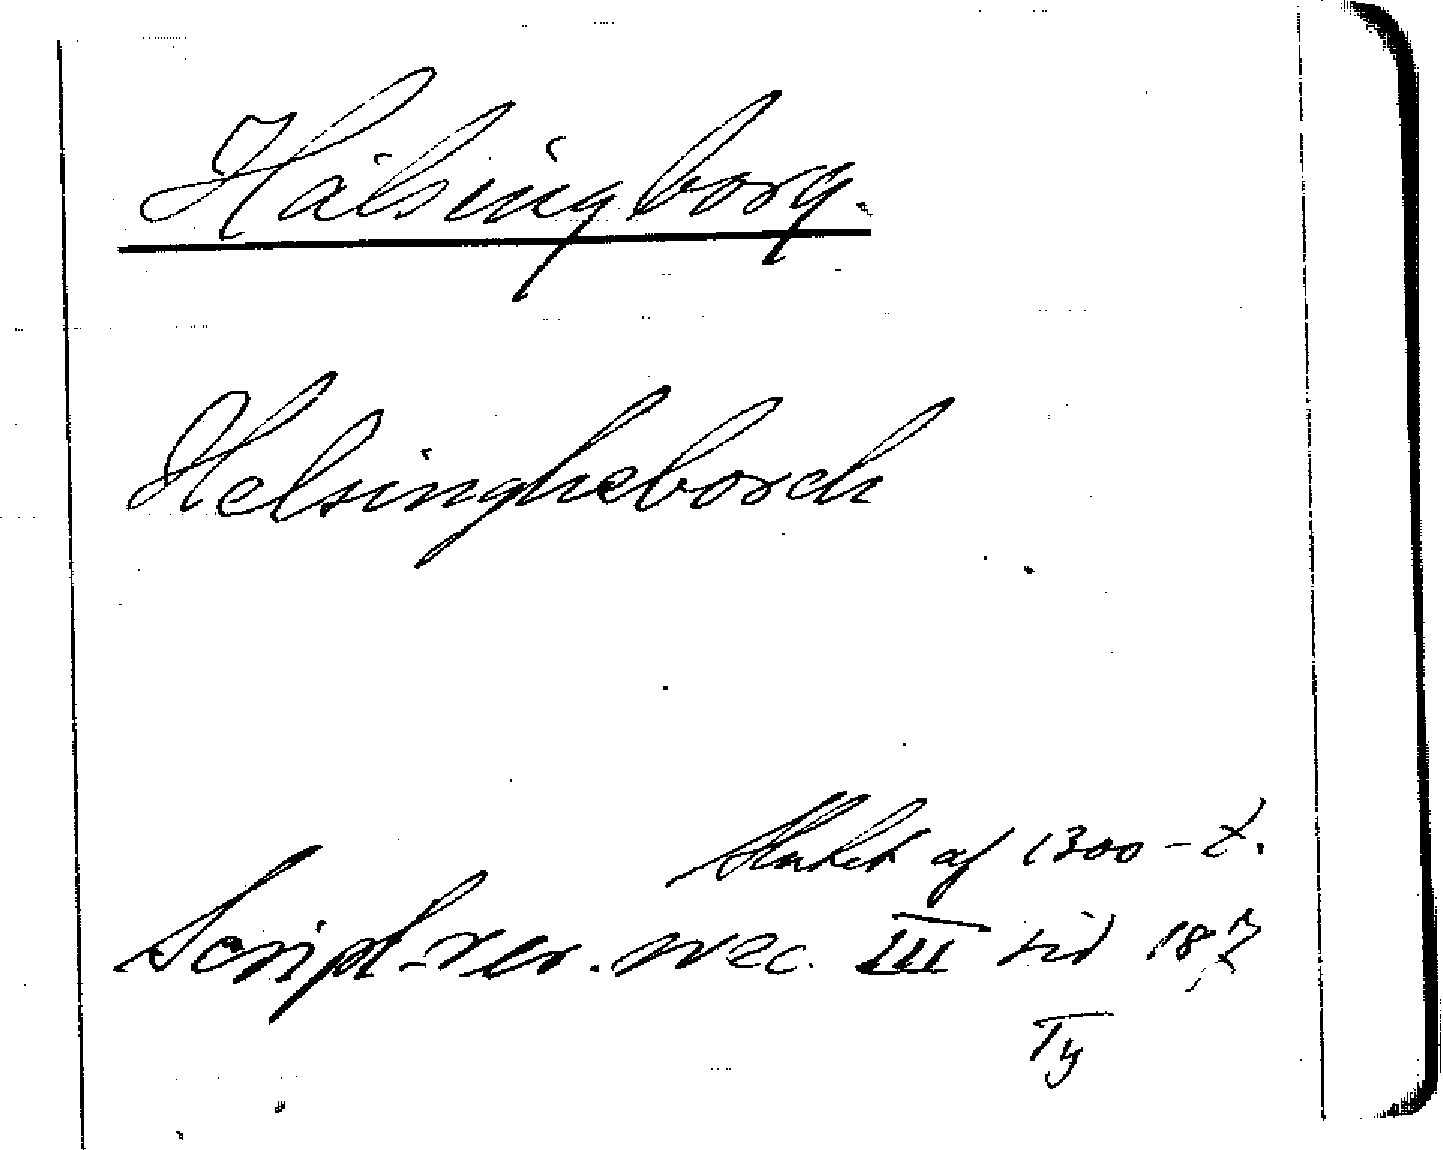 Hälsingborg.
Helsingheborch
Slutet af 1300-t.
Script. rer. svec. III sid 187
Ty